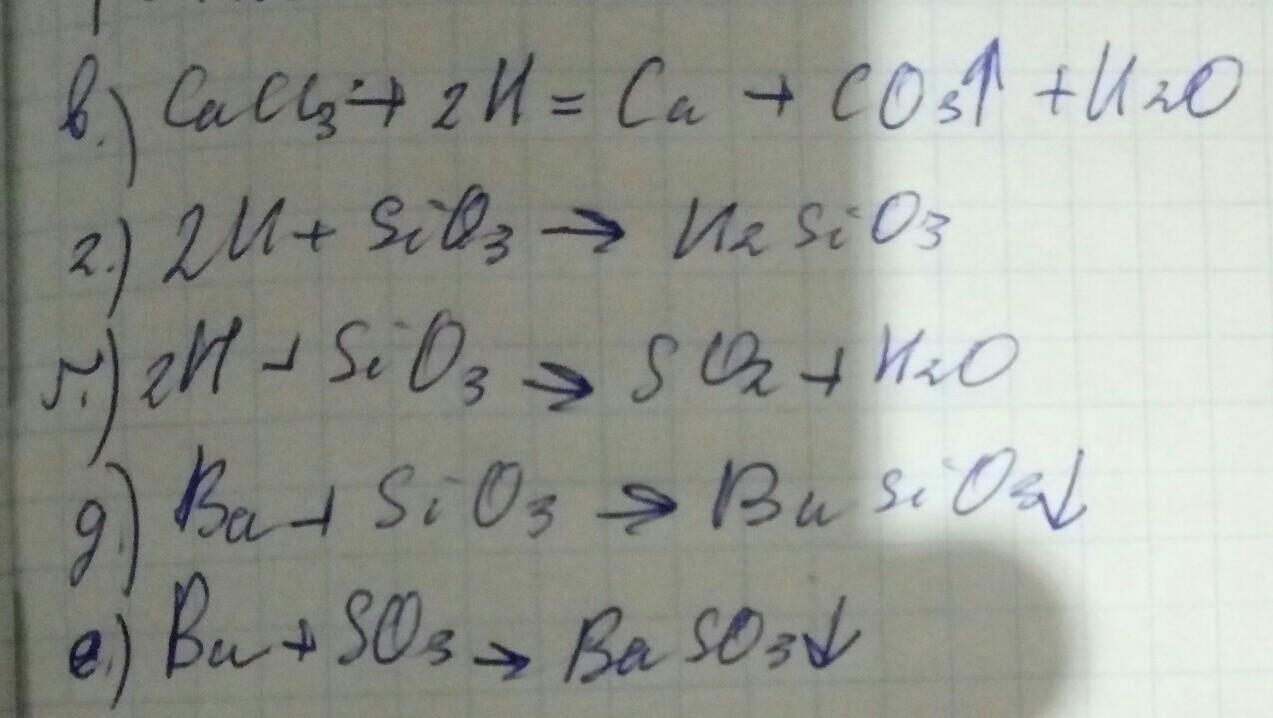 в.) CaCl3 + 2H = Ca + CO3↑ + H2O
г.) 2H + SiO3 → H2SiO3
г.) 2H + SiO3 → SO2 + H2O
д.) Ba + SiO3 → BaSiO3↓
е.) Ba + SO3 → BaSO3↓